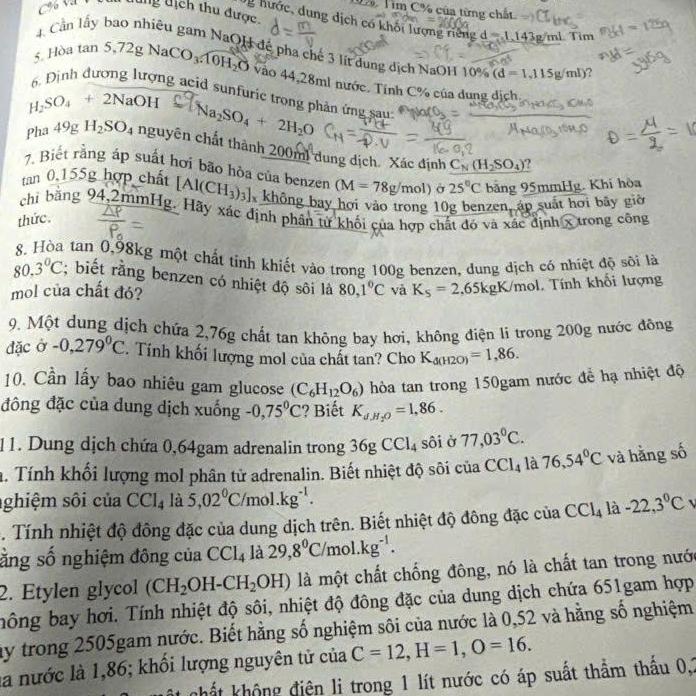 Tìm C% của từng chất.
dung dịch thu được.
nước, dung dịch có khối lượng riêng d = 1,143g/ml. Tìm
4. Cần lấy bao nhiêu gam NaOH để pha chế 3 lít dung dịch NaOH 10% (d = 1,115g/ml)?
5. Hòa tan 5,72g NaCO₃.10H₂O vào 44,28ml nước. Tính C% của dung dịch.
6. Định đương lượng acid sunfuric trong phản ứng sau:
H₂SO₄ + 2NaOH Na₂SO₄ + 2H₂O
Pha 49g H₂SO₄ nguyên chất thành 200ml dung dịch. Xác định C_N (H₂SO₄)?
7. Biết rằng áp suất hơi bão hòa của benzen (M = 78g/mol) ở 25⁰C bằng 95mmHg. Khi hòa
tan 0,155g hợp chất [Al(CH₃)₃]ₓ không bay hơi vào trong 10g benzen, áp suất hơi bây giờ
chỉ bằng 94,2mmHg. Hãy xác định phân tử khối của hợp chất đó và xác định x trong công
thức.
8. Hòa tan 0,98kg một chất tinh khiết vào trong 100g benzen, dung dịch có nhiệt độ sôi là
80,3⁰C; biết rằng benzen có nhiệt độ sôi là 80,1⁰C và K_S = 2,65kgK/mol. Tính khối lượng
mol của chất đó?
9. Một dung dịch chứa 2,76g chất tan không bay hơi, không điện li trong 200g nước đông
đặc ở -0,279⁰C. Tính khối lượng mol của chất tan? Cho K_đ(H2O) = 1,86.
10. Cần lấy bao nhiêu gam glucose (C₆H₁₂O₆) hòa tan trong 150gam nước để hạ nhiệt độ
đông đặc của dung dịch xuống -0,75⁰C? Biết K_đ,H₂O = 1,86.
11. Dung dịch chứa 0,64gam adrenalin trong 36g CCl₄ sôi ở 77,03⁰C.
. Tính khối lượng mol phân tử adrenalin. Biết nhiệt độ sôi của CCl₄ là 76,54⁰C và hằng số
nghiệm sôi của CCl₄ là 5,02⁰C/mol.kg⁻¹.
. Tính nhiệt độ đông đặc của dung dịch trên. Biết nhiệt độ đông đặc của CCl₄ là -22,3⁰C v
ằng số nghiệm đông của CCl₄ là 29,8⁰C/mol.kg⁻¹.
2. Etylen glycol (CH₂OH-CH₂OH) là một chất chống đông, nó là chất tan trong nướ
hông bay hơi. Tính nhiệt độ sôi, nhiệt độ đông đặc của dung dịch chứa 651gam hợp
ày trong 2505gam nước. Biết hằng số nghiệm sôi của nước là 0,52 và hằng số nghiệm
ủa nước là 1,86; khối lượng nguyên tử của C = 12, H = 1, O = 16.
một chất không điện li trong 1 lít nước có áp suất thẩm thấu 0,